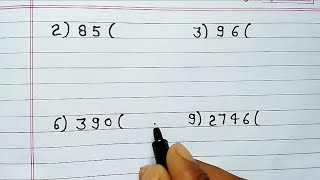 2) 85( 3) 96(
6) 390( 9) 2746(